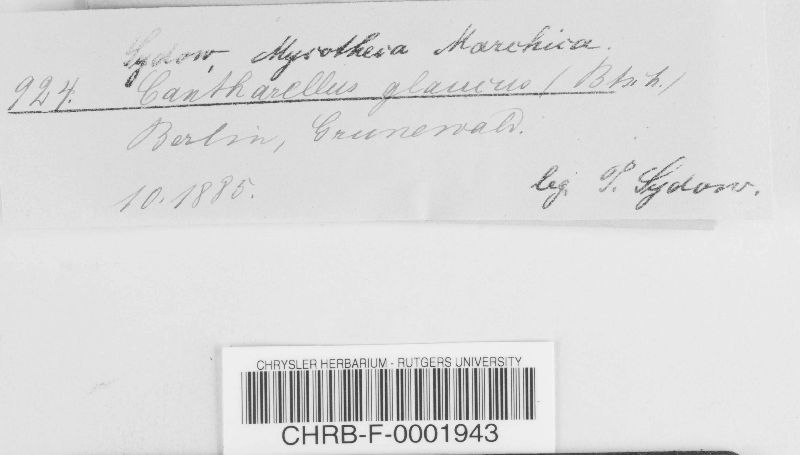 Sydow, Mycotheca Marchica.
924. Cantharellus glaucus (Btsch.)
Berlin, Grunewald.
10.1885.
leg. P. Sydow.
CHRYSLER HERBARIUM - RUTGERS UNIVERSITY
CHRB-F-0001943